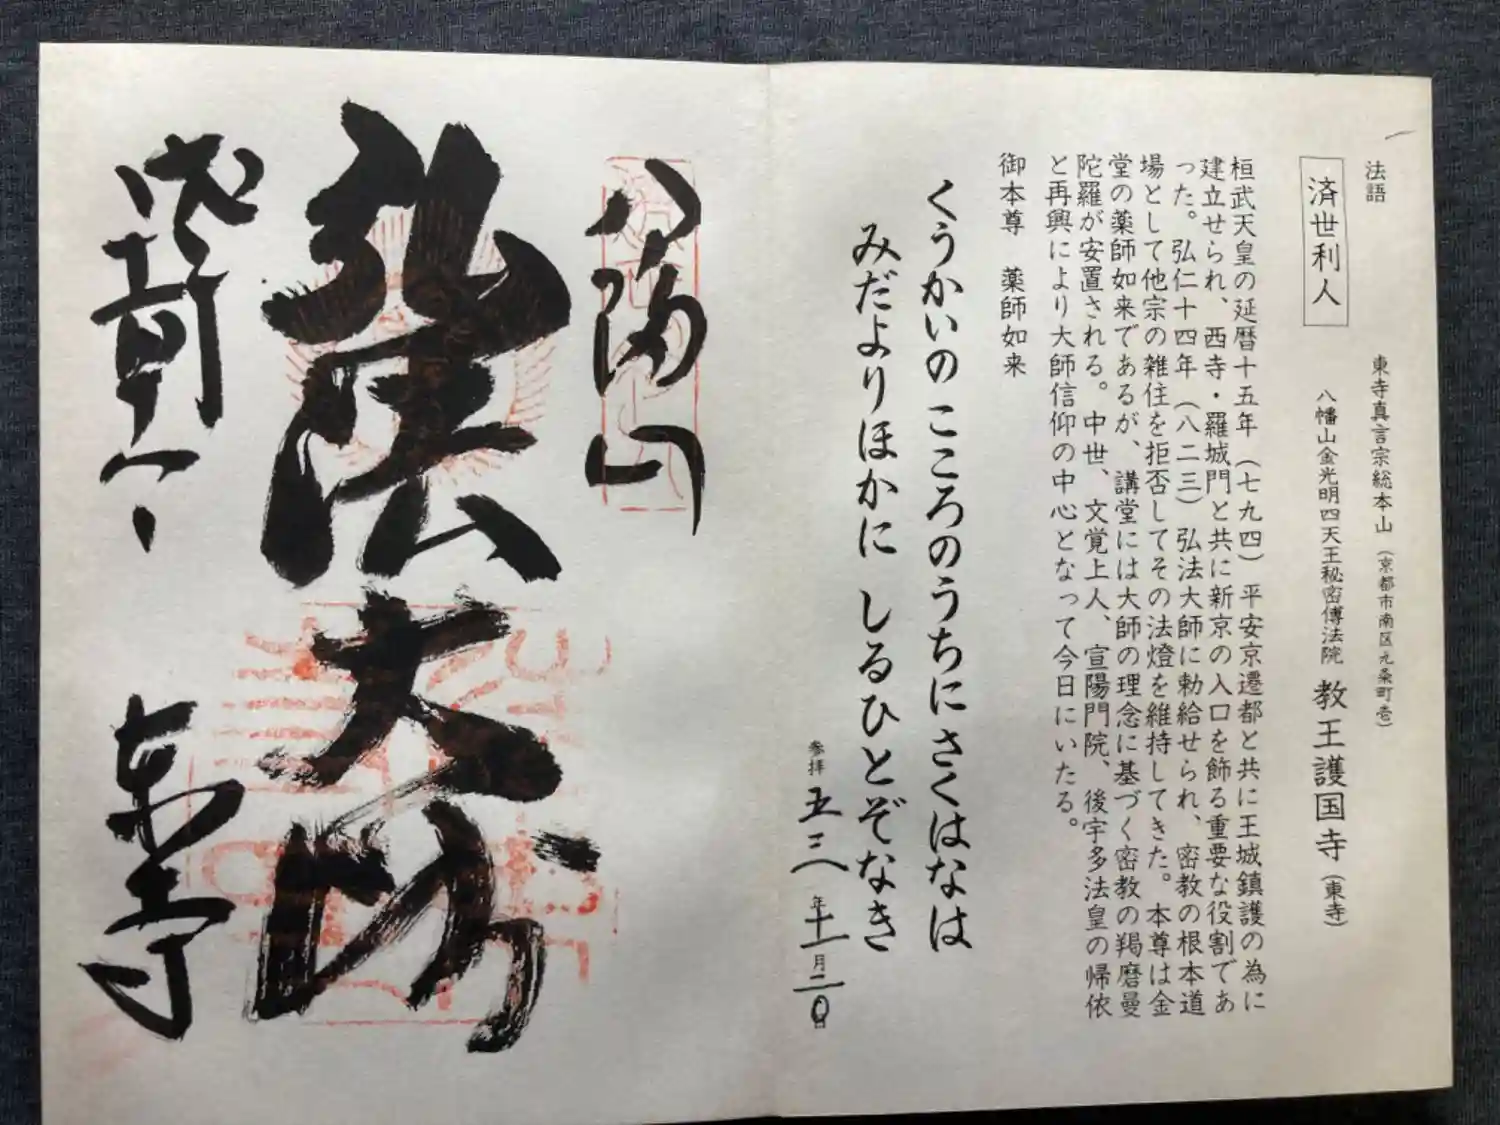 法語
東寺真言宗総本山（京都市南区九条町壱）
済世利人
八幡山金光明四天王秘密傳法院 教王護国寺（東寺）
桓武天皇の延暦十五年（七九四）平安京遷都と共に王城鎮護の為に
建立せられ、西寺・羅城門と共に新京の入口を飾る重要な役割であ
った。弘仁十四年（八二三）弘法大師に勅給せられ、密教の根本道
場として他宗の雑住を拒否してその法燈を維持してきた。本尊は金
堂の薬師如来であるが、講堂には大師の理念に基づく密教の羯磨曼
陀羅が安置される。中世、文覚上人、宣陽門院、後宇多法皇の帰依
と再興により大師信仰の中心となって今日にいたる。
御本尊 薬師如来
くうかいの こころのうちに さくはなは
みだよりほかに しるひとぞなき
参拝 年十一月二日
八幡山
弘法大師
東寺